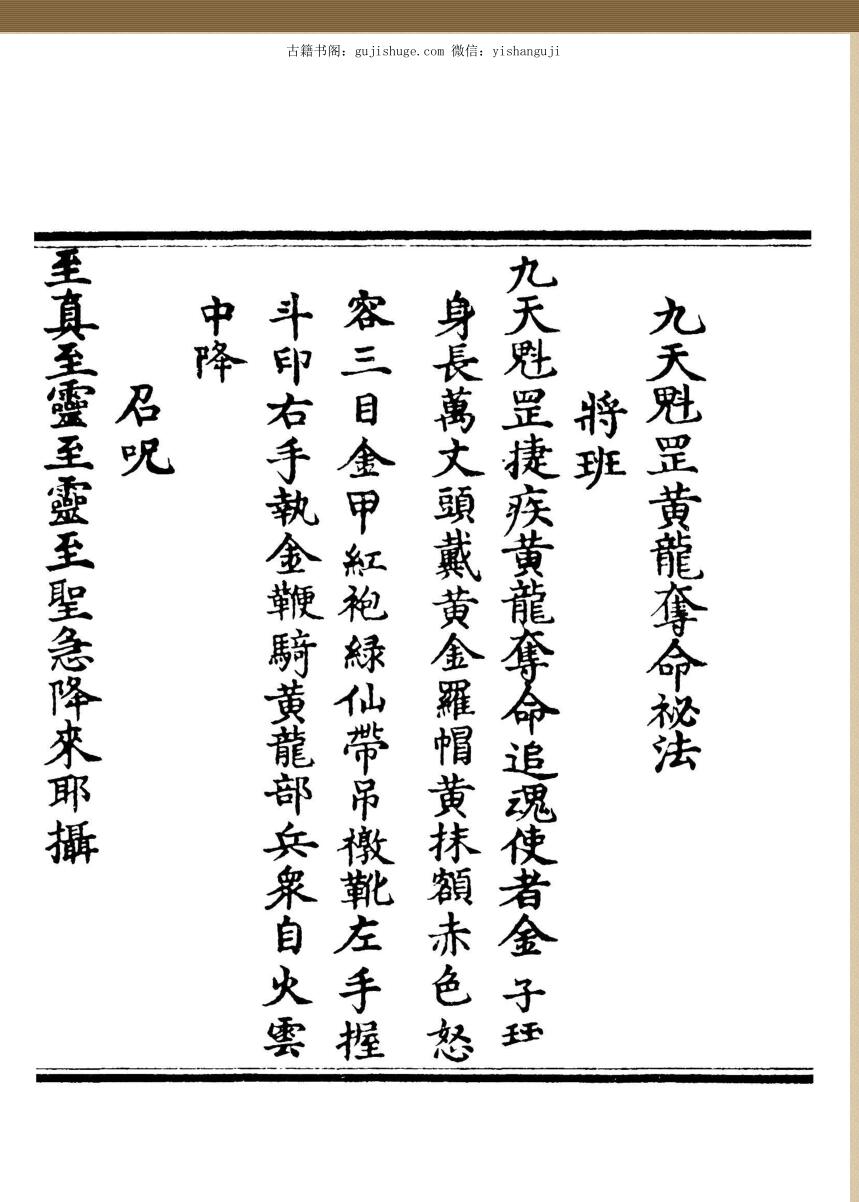 古籍书阁: gujishuge.com 微信: yishanguji
九天魁罡黄龍奪命祕法
將班
九天魁罡捷疾黄龍奪命追魂使者金子珏
身長萬丈頭戴黄金羅帽黄抹額赤色怒
容三目金甲紅袍緑仙帶吊襒靴左手握
斗印右手執金鞭騎黄龍部兵衆自火雲
中降
召呪
至真至靈至靈至聖急降來耶攝